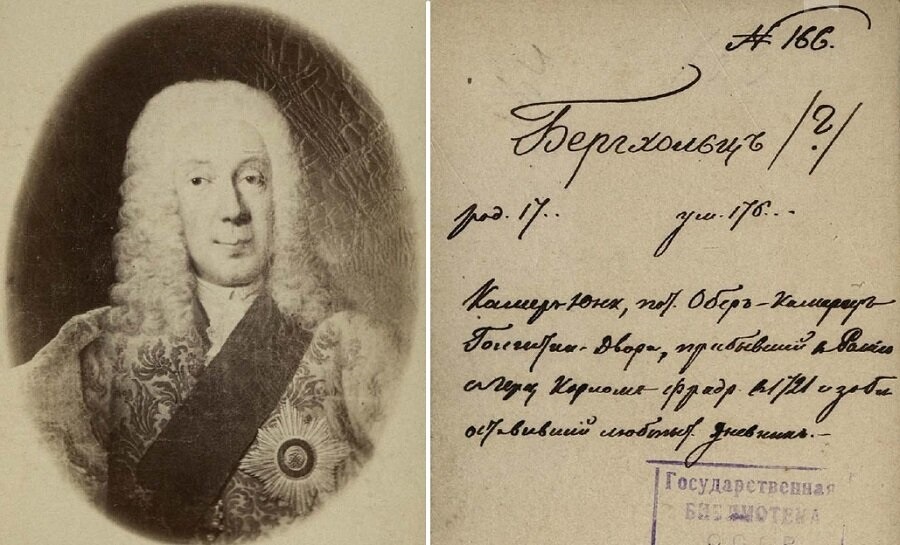 № 166.
Бергхольцъ /?/
род. 17.. ум. 176...
Камеръ-Юнк, пот. Оберъ-Камергеръ
Двора, прибывшій въ
Карломъ Фридр. въ 1721 г
оставившій любопыт. дневникъ.-
Государственная
БИБЛИОТЕКА
СССР